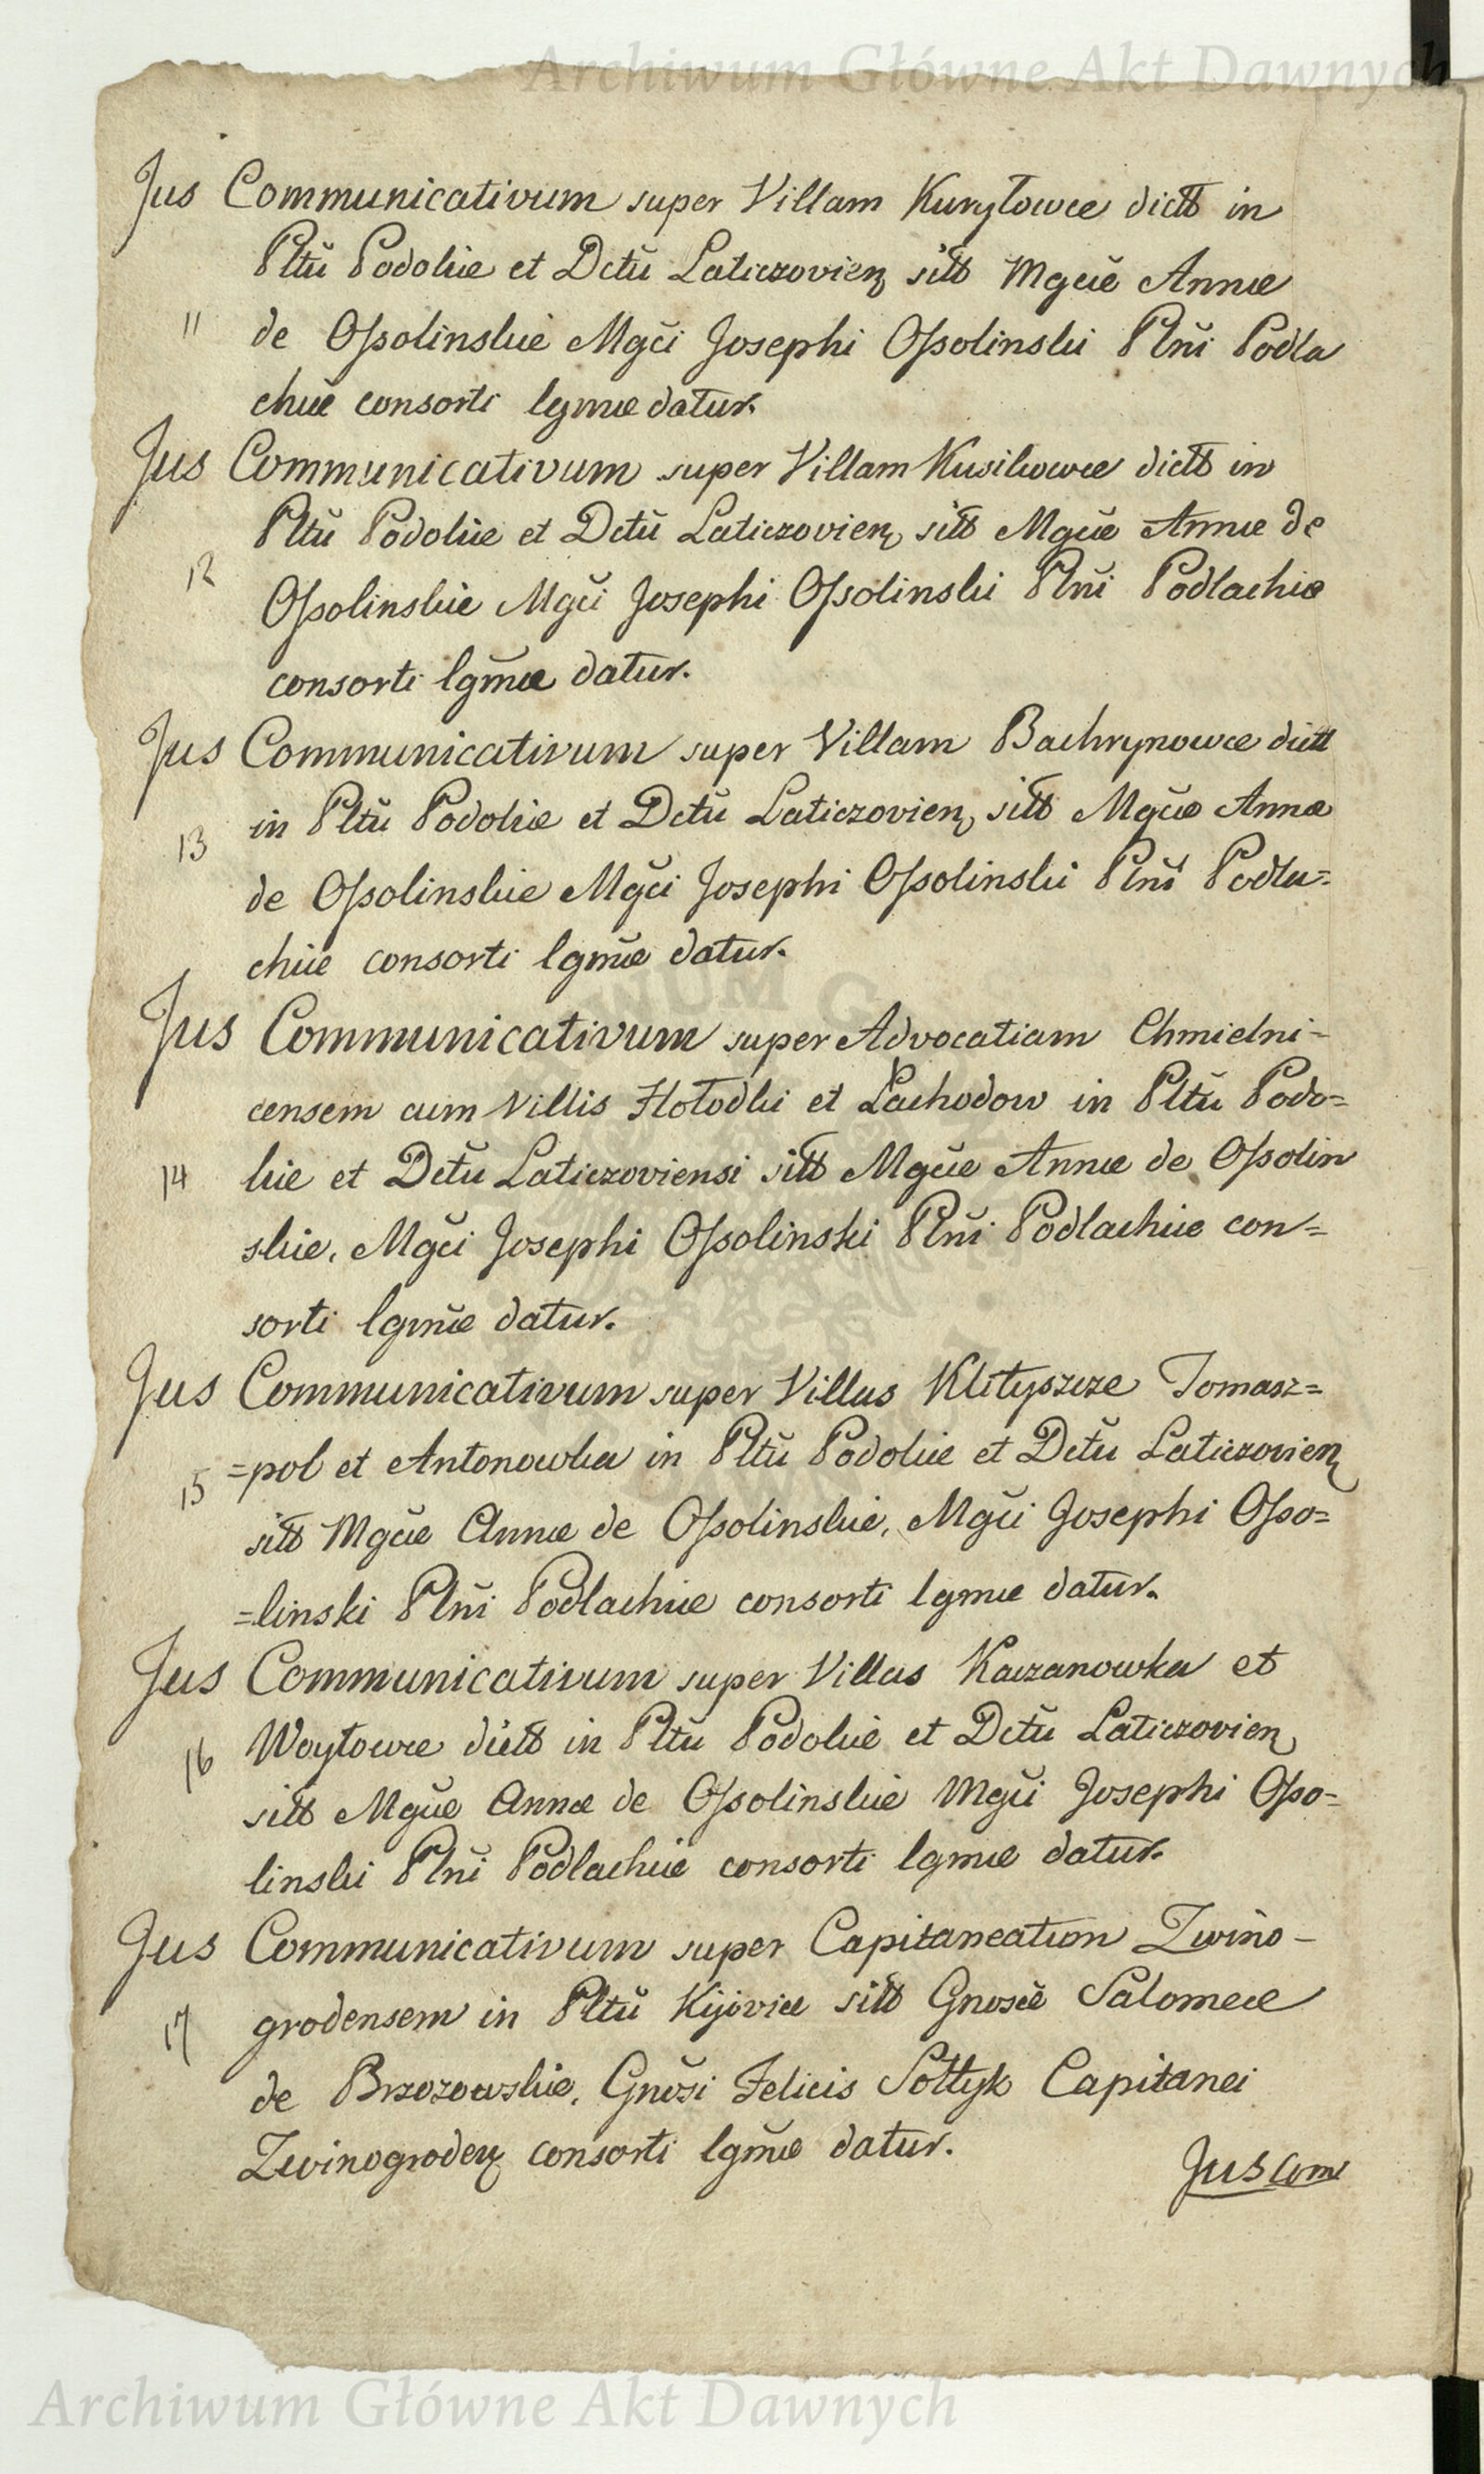 Archiwum Główne Akt Dawnych
Jus Communicativum super Villam Kuryłowce dictt in
Pltũ Podoliæ et Dctũ Laticzovien sitt Mgcæ Annæ
11 de Ossolinskie Mgci Josephi Ossolinski Plni Podla
chiæ consorti lgmæ datur.
Jus Communicativum super Villam Kusikowce dictt in
Pltũ Podoliæ et Dctũ Laticzovien sitt Mgcæ Annæ de
12 Ossolinskie Mgci Josephi Ossolinski Plni Podlachiæ
consorti lgmæ datur.
Jus Communicativum super Villam Bachrynowce dictt
13 in Pltũ Podoliæ et Dctũ Laticzovien sitt Mgcæ Annæ
de Ossolinskie Mgci Josephi Ossolinski Plni Podla=
chiæ consorti lgmæ datur.
Jus Communicativum super Advocatiam Chmielni=
censem cum Villis Hołodki et Lachodow in Pltũ Podo=
14 liæ et Dctũ Laticzoviensi sitt Mgcæ Annæ de Ossolin
skie, Mgci Josephi Ossolinski Plni Podlachiæ con=
sorti lgmæ datur.
Jus Communicativum super Villas Klityszcze Tomasz=
15 =pol et Antonowka in Pltũ Podoliæ et Dctũ Laticzovien
sitt Mgcæ Annæ de Ossolinskie, Mgci Josephi Osso=
=linski Plni Podlachiæ consorti lgmæ datur.
Jus Communicativum super Villas Kaczanowka et
16 Woytowce dictt in Pltũ Podoliæ et Dctũ Laticzovien
sitt Mgcæ Annæ de Ossolinskie Mgci Josephi Osso-
linski Plni Podlachiæ consorti lgmæ datur.
Jus Communicativum super Capitaneatum Zwino-
17 grodensem in Pltũ Kijoviæ sitt Gnosæ Salomeæ
de Brzozowskie, Gnosi Felicis Sołtyk Capitanei
Zwinogroden consorti lgmæ datur.
Jus Com
Archiwum Główne Akt Dawnych